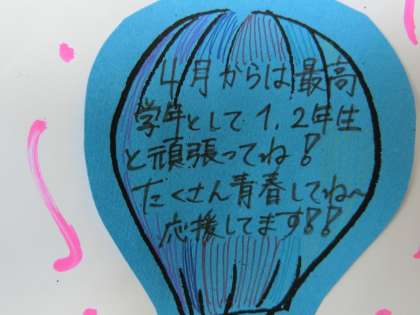 4月からは最高
学年として1,2年生
と頑張ってね!
たくさん青春してね〜
応援してます!!